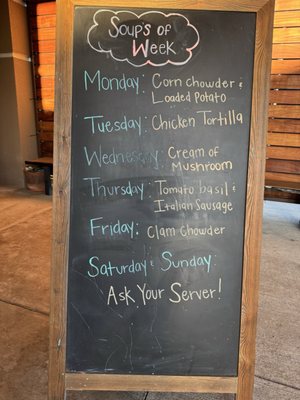 Soup's of
Week
Monday: Corn chowder &
Loaded Potato
Tuesday: Chicken Tortilla
Wednesday: Cream of
Mushroom
Thursday: Tomato basil &
Italian Sausage
Friday: Clam Chowder
Saturday & Sunday:
Ask Your Server!